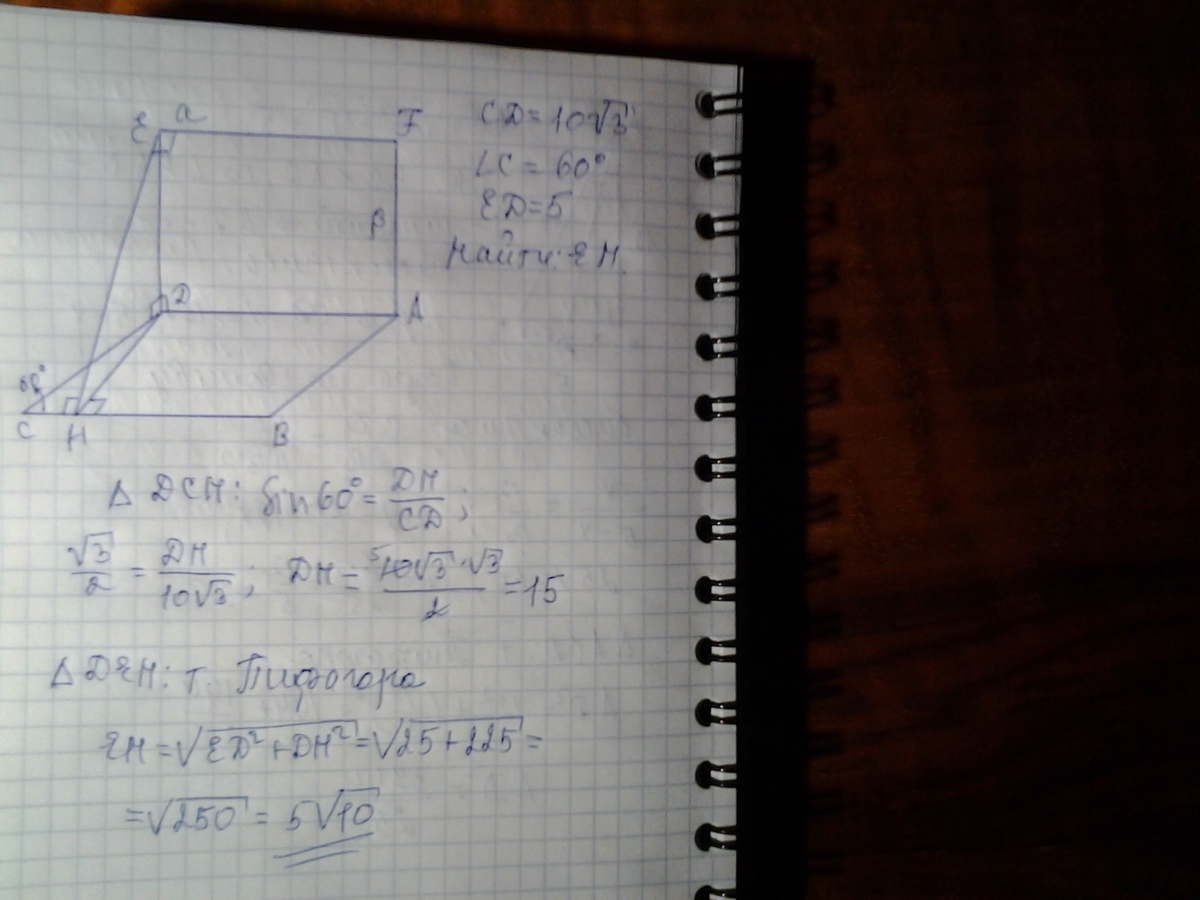 E a F
β
D A
60°
C H B
CD = 10√3
∠C = 60°
ED = 5
Найти: EH.
Δ DCH: sin 60° = DH/CD;
√3/2 = DH/10√3; DH = ⁵10√3·√3/2 = 15
Δ DEH: т. Пифогора
EH = √ED² + DH² = √25 + 225 =
= √250 = 5√10